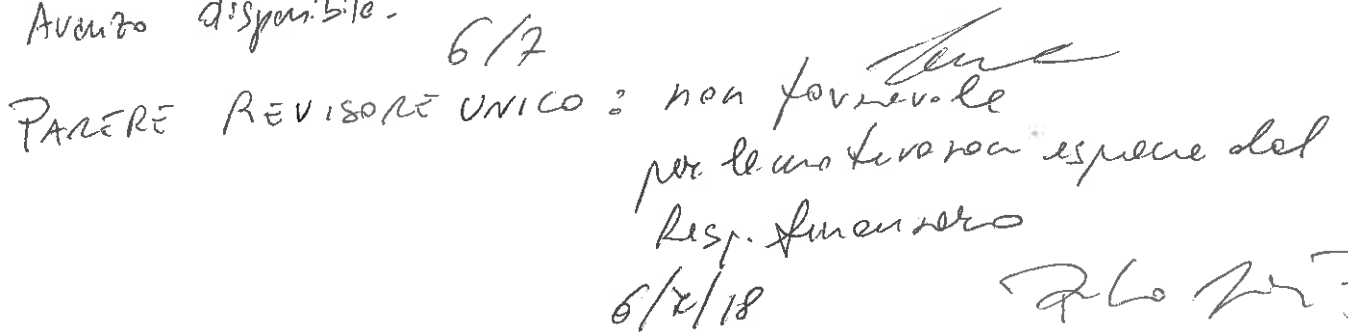 Avanzo disponibile.
6/7
PARERE REVISORE UNICO : non favorevole
per le motivazioni espresse dal
Resp. finanziario
6/7/18